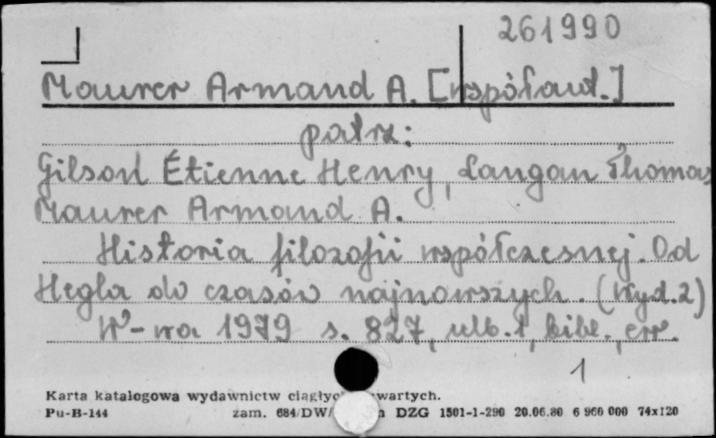 261990
Maurer Armand A. [współaut.]
patrz:
Gilson Étienne Henry, Langan Thomas
Maurer Armand A.
Historia filozofii współczesnej. Od
Hegla do czasów najnowszych. (Wyd. 2)
W-wa 1979 s. 827, ulb. 1, bibl.,
1
Karta katalogowa wydawnictw wartych.
Pu-B-144 zam. 684/DW/ DZG 1501-1-290 20.06.80 6 960 000 74x120